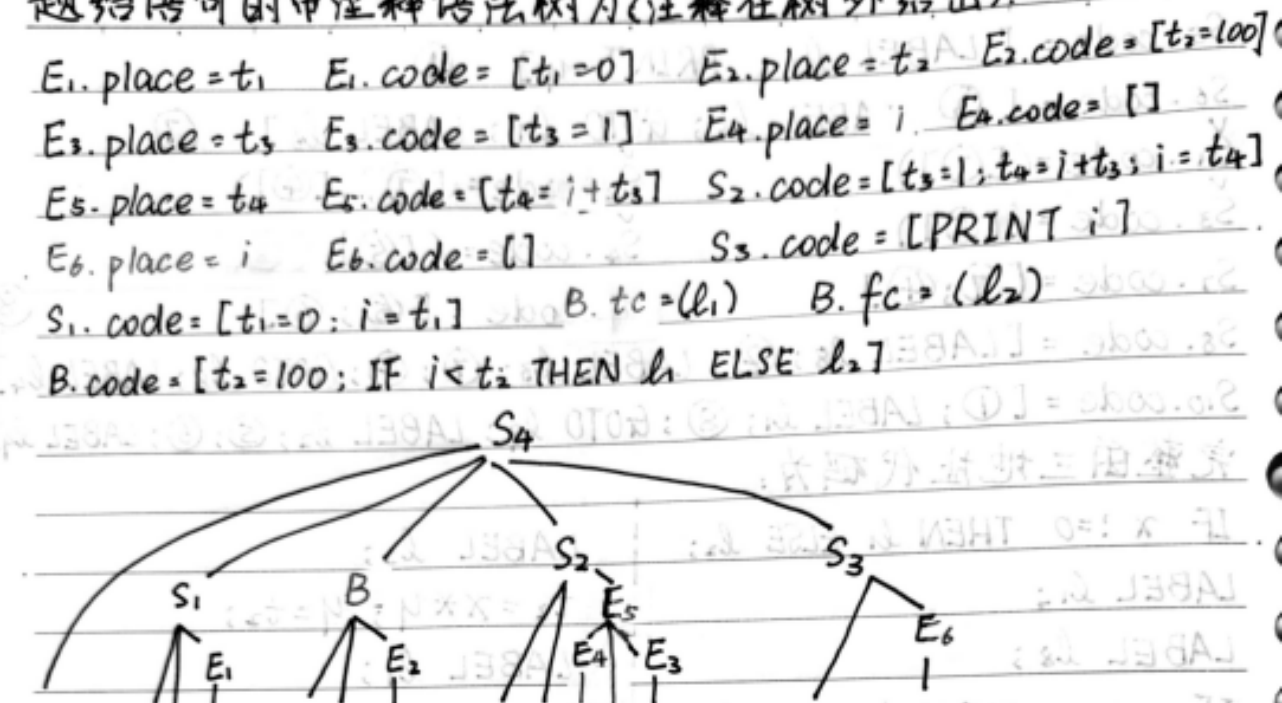 题给语句的带注释语法树为(注释在树外给出)
E₁.place = t₁ E₁.code = [t₁=0] E₂.place = t₂ E₂.code = [t₂=100]
E₃.place = t₃ E₃.code = [t₃=1] E₄.place = i E₄.code = []
E₅.place = t₄ E₅.code = [t₄=i+t₃] S₂.code = [t₃=1; t₄=i+t₃; i=t₄]
E₆.place = i E₆.code = [] S₃.code = [PRINT i]
S₁.code = [t₁=0; i=t₁] B.tc = (l₁) B.fc = (l₂)
B.code = [t₂=100; IF i<t₂ THEN l₁ ELSE l₂]
S₄
S₁ B S₂ S₃
E₅
E₁ E₂ E₄ E₃ E₆